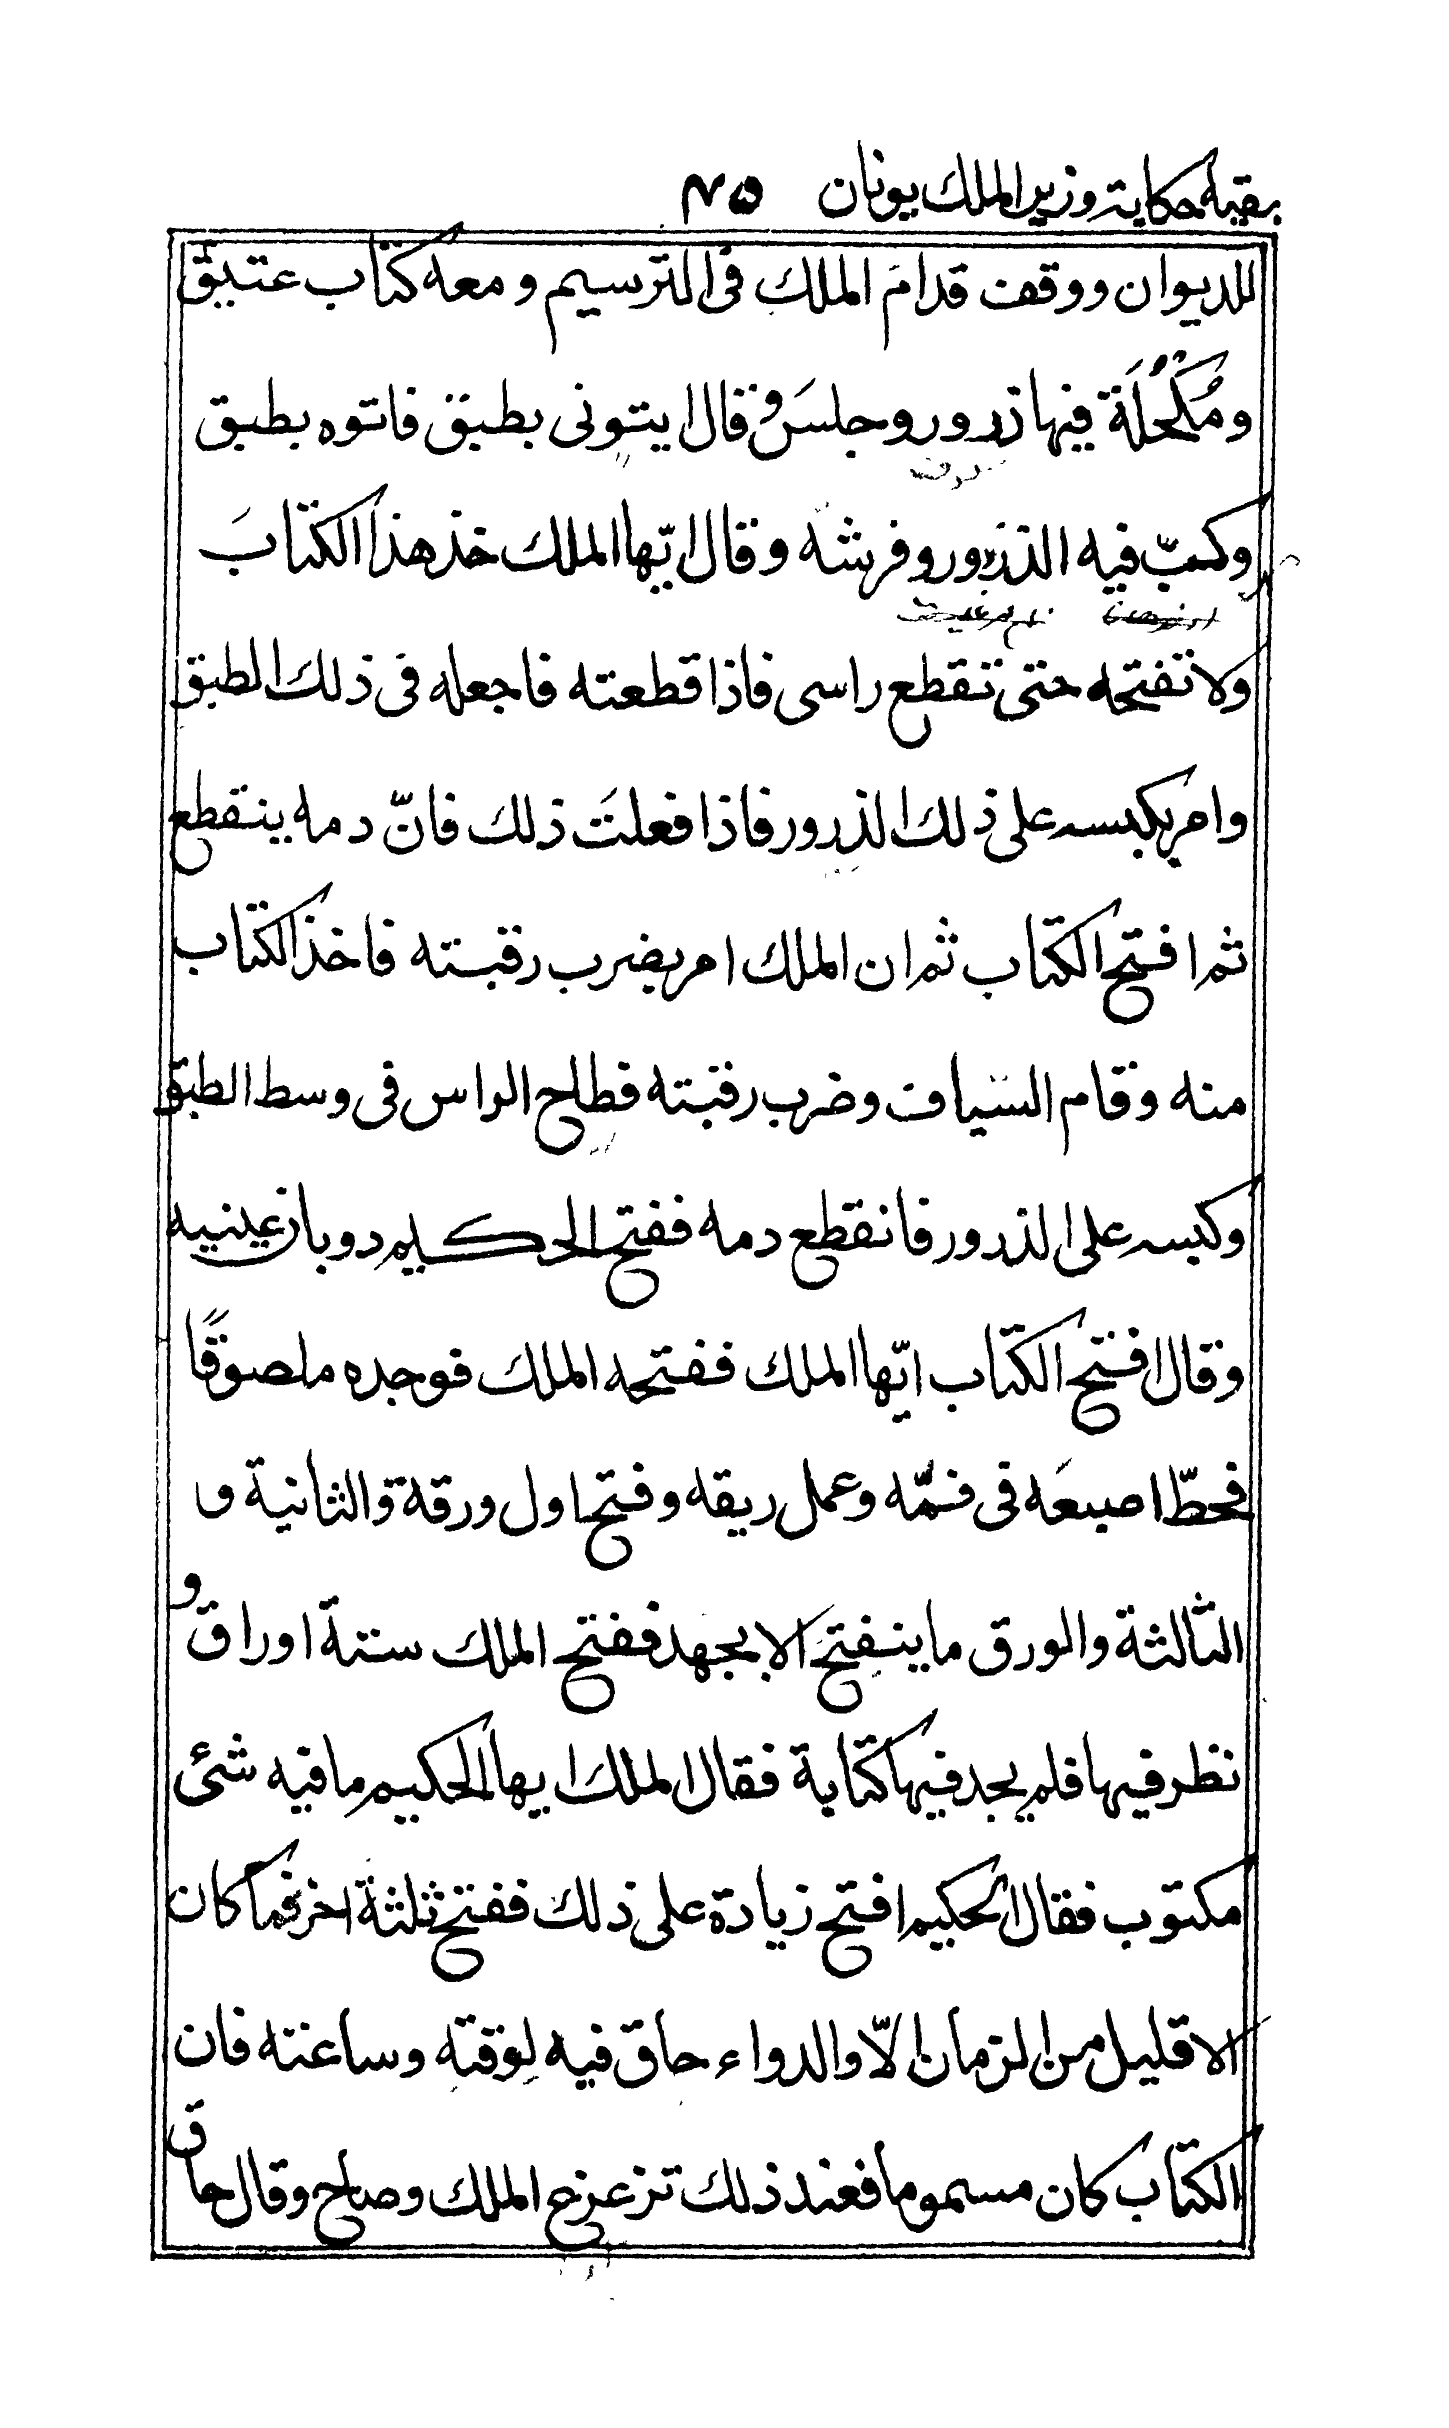 بقية حكاية وزير الملك يونان ٧٥
للديوان ووقف قدامَ الملك فى الترسيم ومعه كتاب عتيق
ومُكْحُلَة فيها ذرور وجلسَ وقال ايتونى بطبق فاتوه بطبق
وكبّ فيه الذرور وفرشه وقال ايّها الملك خذ هذا الكتابَ
ولا تفتحه حتى تقطع راسى فاذا قطعته فاجعله فى ذلك الطبق
وامر بكبسه على ذلك الذرور فاذا فعلتَ ذلك فانّ دمه ينقطع
ثم افتح الكتاب ثم ان الملك امر بضرب رقبته فاخذ الكتاب
منه وقام السياف وضرب رقبته فطلح الراس فى وسط الطبق
وكبسه على الذرور فانقطع دمه ففتح الحكيم دوبان عينيه
وقال افتح الكتاب ايّها الملك ففتحه الملك فوجده ملصوقًا
فحطّ اصبعَه فى فمّه وعمل ريقه وفتح اول ورقة والثانية و
الثالثة والورق ما ينفتح الا بجهد ففتح الملك ستة اوراق و
نظر فيها فلم يجد فيها كتابة فقال الملك ايها الحكيم ما فيه شئ
مكتوب فقال الحكيم افتح زيادة على ذلك ففتح ثلثة اخر فما كان
الا قليل من الزمان الّا والدواء حاق فيه لوقته وساعته فان
الكتاب كان مسموما فعند ذلك تزعزع الملك وصاح وقال حاق